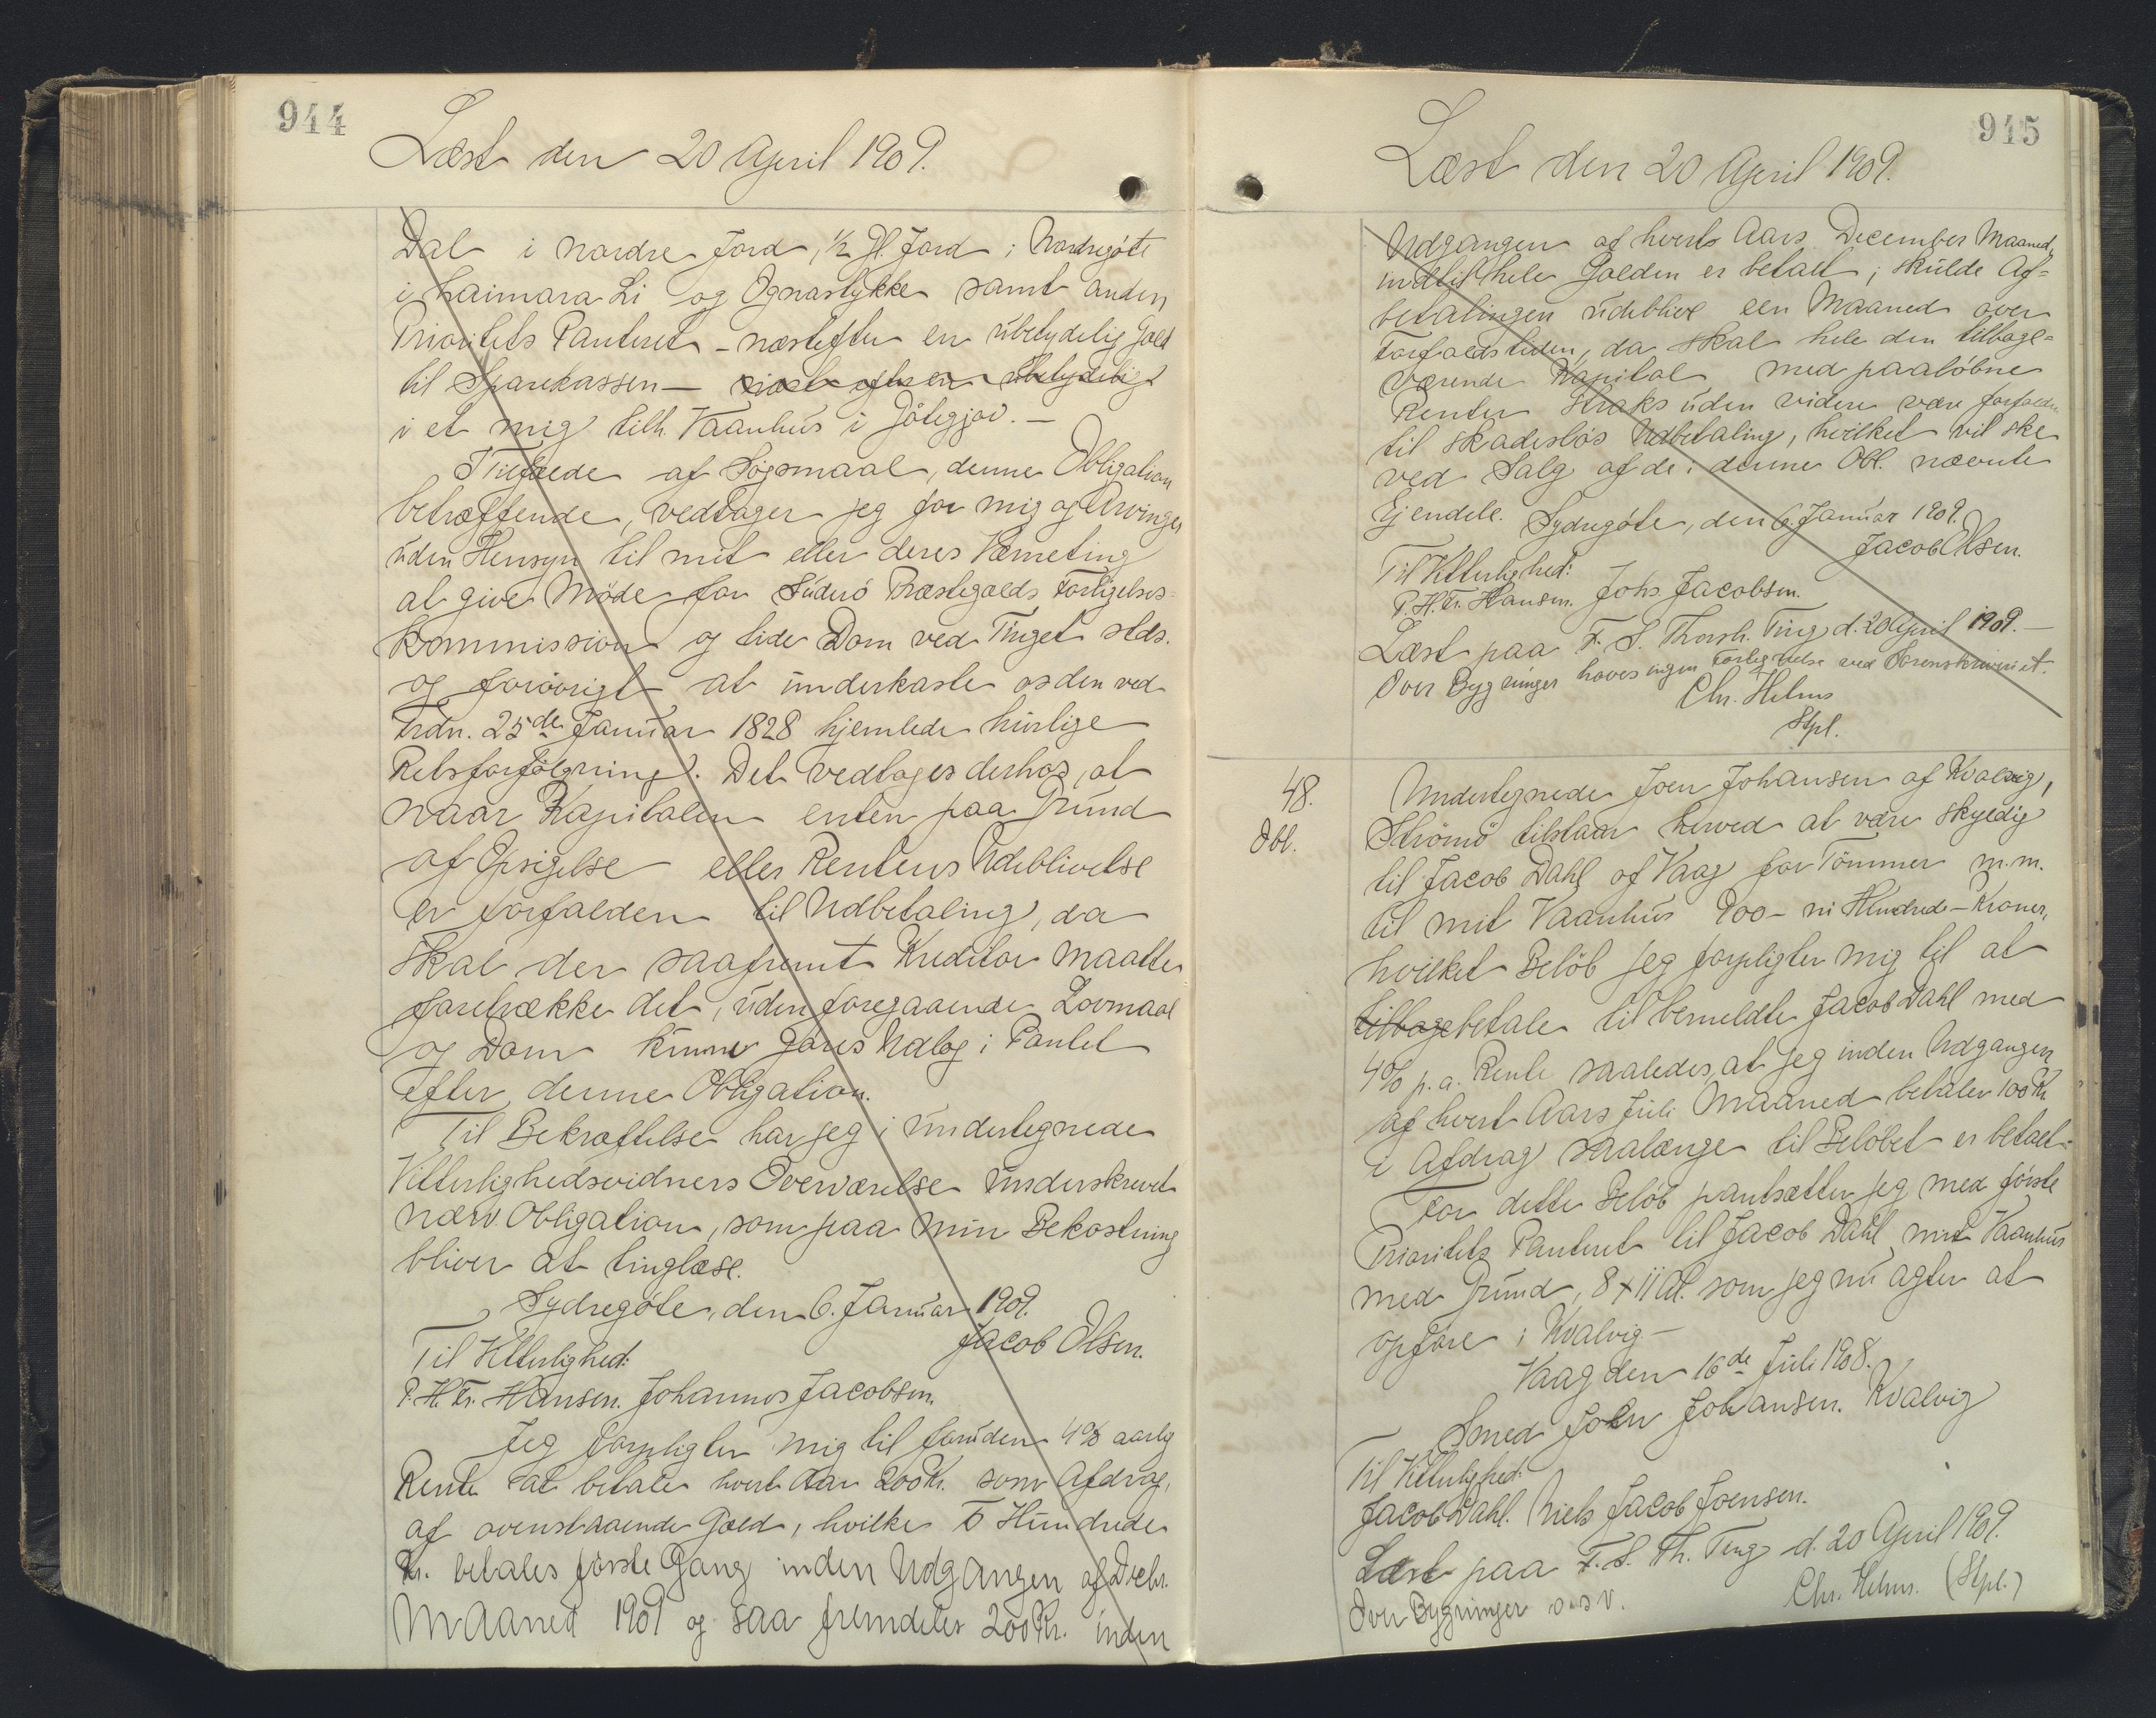 944
Læst den 20 April 1909.
Dal i nordre Jord, 1/2 Gl. Jord i Nordregöte
i haimara Li og Ognastykke samt anden
Prioritets Panteret - næstefter en ubetydelig Gæld
til Sparekassen - næst efter en ubetydelig
i et mig tilh. Vaanhus i Götegjov. -
I Tilfælde af Søgsmaal, denne Obligation
betræffende, vedtager jeg for mig og Arvinger
uden Hensyn til mit eller deres Værneting
at give Möde for Süderö Præstegjælds Forligelses-
kommission og lide Dom ved Tinget stds.
og forövrigt at underkaste os den ved
Frdn. 25de Januar 1828 hjemlede hurtige
Retsforfölgning. Det vedtages derhos, at
naar Kapitalen enten paa Grund
af Opsigelse eller Rentens Udeblivelse
er forfalden til Udbetaling, da
skal der saafremt Kreditor maatte
foretrække det, uden foregaaende Lovmaal
og Dom kunne gjøres Udlæg i Pantet
efter denne Obligation.
Til Bekræftelse har jeg i undertegnede
Vitterlighedsvidners Overværelse underskrevet
nærv. Obligation, som paa min Bekostning
bliver at tinglæse.
Sydregöte, den 6. Januar 1909.
Jacob Olsen.
Til Vitterlighed:
P. H. Fr. Hansen. Johannes Jacobsen.
Jeg forpligter mig til foruden 4% aarlig
Rente at betale hvert Aar 200 Kr. som Afdrag
af ovenstaaende Gæld, hvilke To Hundrede
Kr. betales förste Gang inden Udgangen af Decbr.
Maaned 1909 og saa fremdeles 200 Kr. inden
945
Læst den 20 April 1909.
Udgangen af hverts Aars December Maaned,
indtil hele Gælden er betalt; skulde Af-
betalingen udeblive een Maaned over
Forfaldstiden, da skal hele den tilbage-
værende Kapital med paaløbne
Renter straks uden videre være forfalden
til skadeslös Udbetaling, hvilket vil ske
ved Salg af de i denne Obl. nævnte
Ejendele. Sydregöte, den 6. Januar 1909.
Jacob Olsen.
Til Vitterlighed:
P. H. Fr. Hansen. Johs. Jacobsen.
Læst paa F. S. Thorsh. Ting d. 20 April 1909. -
Over Bygninger haves ingen Fortegnelse ved Sorenskriveriet.
Chr. Helms
Stpl.
48.
Obl.
Undertegnede Joen Johansen af Kvalvig,
Strömö tilstaar herved at være skyldig
til Jacob Dahl af Vaag for Tömmer m.m.
til mit Vaanhus 900 - ni Hundrede - Kroner,
hvilket Belöb jeg forpligter mig til at
tilbagebetale til bemeldte Jacob Dahl med
4% p. a. Rente saaledes, at jeg inden Udgangen
af hvert Aars Juli Maaned betaler 100 Kr
i Afdrag saalænge til Belöbet er betalt.
For dette Belöb pantsætter jeg med förste
Prioritets Panteret til Jacob Dahl mit Vaanhus
med Grund, 8 x 11 Al. som jeg nu agter at
opföre i Kvalvig -
Vaag den 16de Juli 1908.
Smed Joen Johansen. Kvalvig
Til Vitterlighed:
Jacob Dahl. Niels Jacob Joensen.
Læst paa F. S. Th. Ting d. 20 April 1909.
Over Bygninger o s v.
Chr. Helms. (Stpl.)